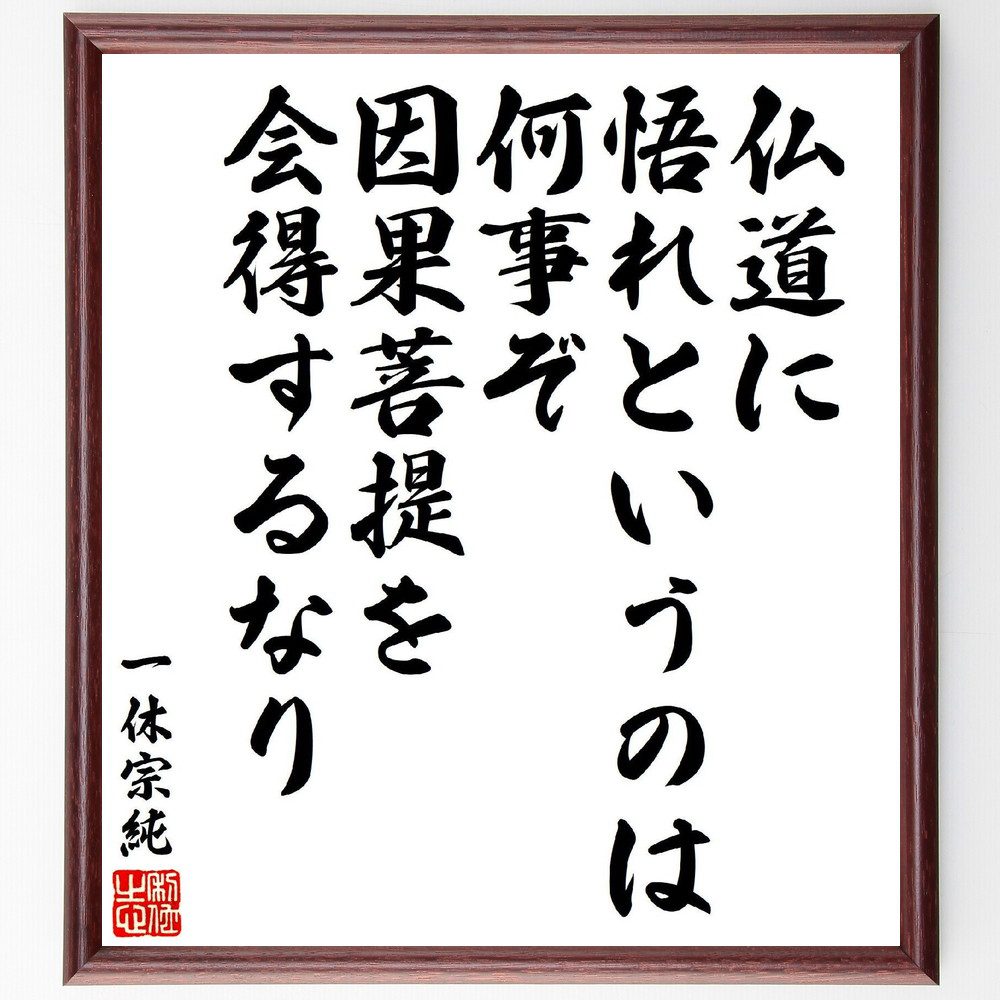 仏道に
悟れというのは
何事ぞ
因果菩提を
会得するなり
一休宗純